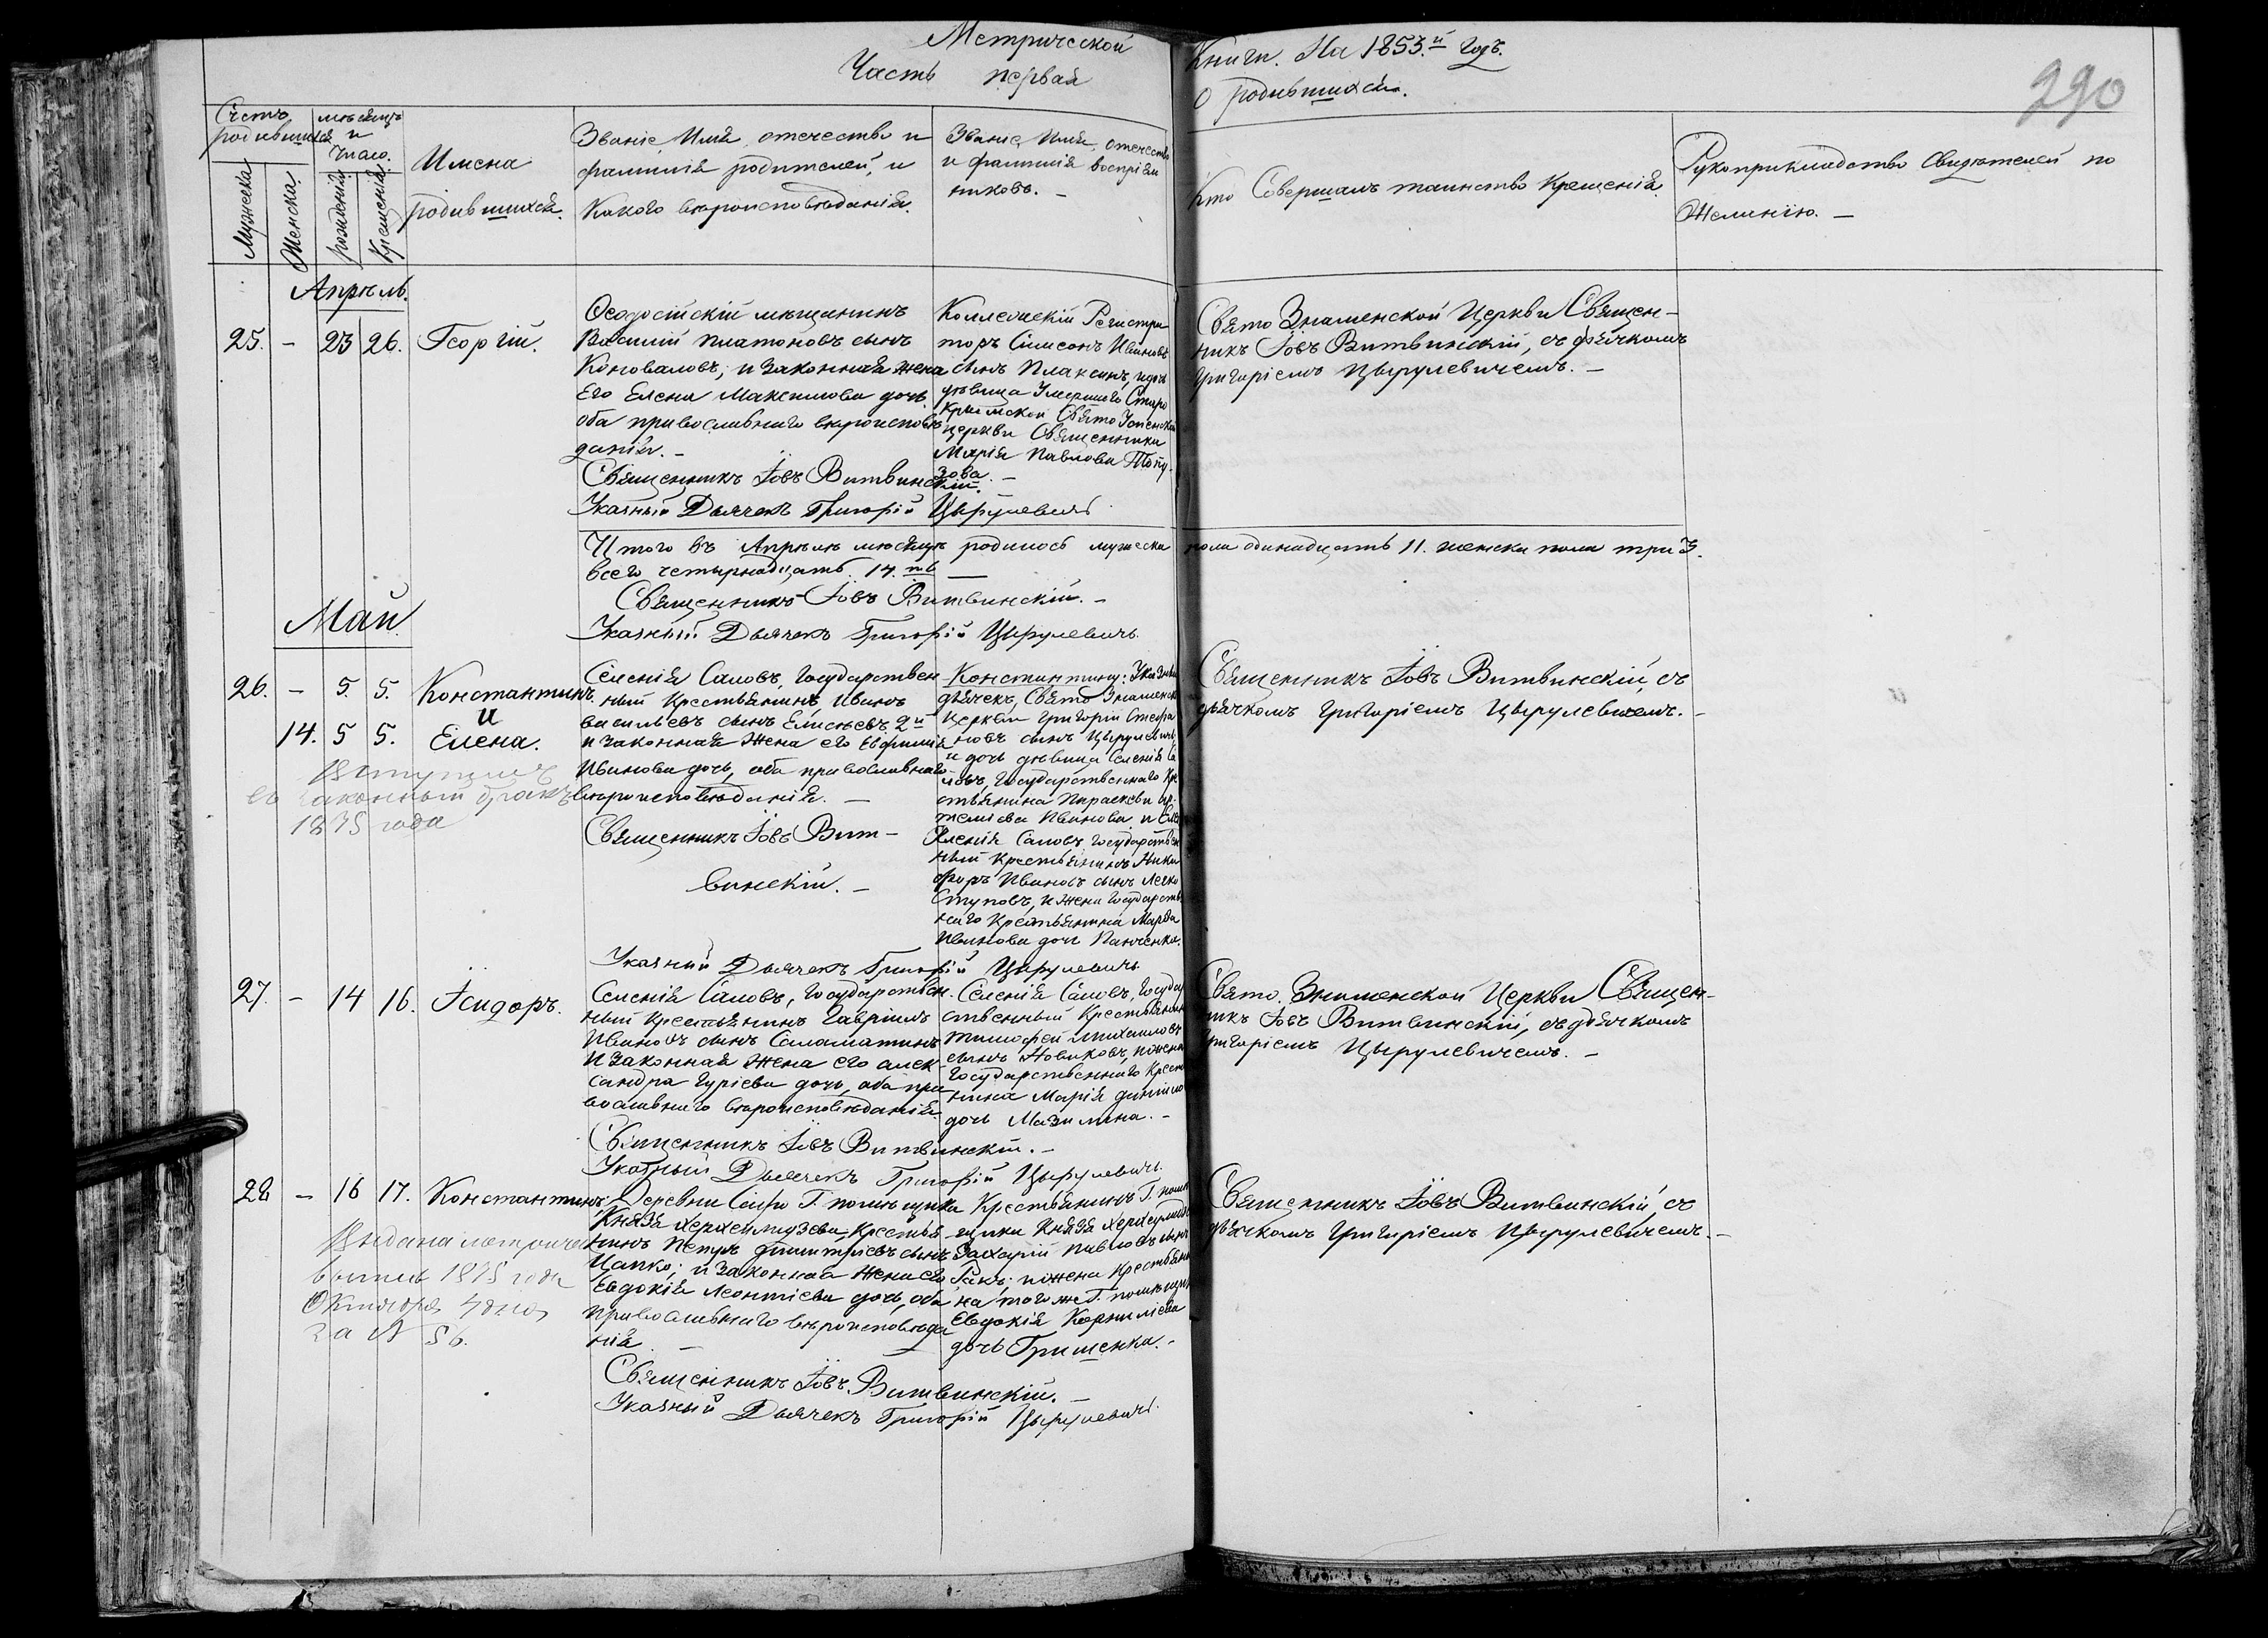 Метрической Книги. На 1853.й годъ.
Часть первая О родившихся.
290
Счетъ родившихся
Мужеска
Женска
мѣсяцъ и число.
рожденія
Крещенія
Имена
родившихся.
Званіе, Имя, отечество и
фамилія родителей, и
Какого вѣроисповѣданія.
Званіе, Имя, отечество
и фамилія воспріем
никовъ. —
Кто Совершалъ таинство Крещенія.
Рукоприкладство Свидѣтелей по
Желанію. —
Апрѣль.
25. – 23 26. Георгій.
Ѳеодосійскій мѣщанинъ
Василій Платоновъ сынъ
Коноваловъ, и законная жена
Его Елена Максимова дочь
оба православнаго вѣроисповѣ
данія. –
Священникъ Іовъ Витвинскій.
Указный Дьячекъ Григорій Цырулевичъ
Коллежскій Регистра
торъ Симеонъ Ивановъ
сынъ Плаксинъ, и дочь
дѣвица Умершаго Старо
Крымской Свято Успенской
церкви Священника
Марія Павлова Топу
зова. –
Свято Знаменской Церкви Священ–
никъ Іовъ Витвинскій, съ дьячкомъ
Григоріемъ Цырулевичемъ. –
Итого въ Апрѣлѣ мѣсяцѣ родилось мужеска пола одинадцать 11. женска пола три 3.
всего четырнадцать 14.ть —
Священникъ Іовъ Витвинскій. –
Указный Дьячекъ Григорій Цырулевичъ
Май.
26. – 5. 5. Константинъ
и
14. 5 5. Елена.
Вступилъ
въ законный бракъ
1875 года
Селенія Саловъ, Государствен
ный Крестьянинъ Иванъ
васильевъ сынъ Елисѣевъ 2й
и законная жена его Евфимія
Иванова дочь, оба православнаго
вѣроисповѣданія. —
Священникъ Іовъ Вит–
винскій. –
Указный Дьячекъ Григорій Цырулевичъ
Константину: Указный
дьячекъ, Свято Знаменской
церкви Григорій Стефа
новъ сынъ Цырулевичъ
и дочь дѣвица Селенія Са
ловъ, Государственнаго Кре
стьянина Параскева ар
темова Иванова, и
Селенія Саловъ, Государствен
ный Крестьянинъ Ники
форъ Ивановъ сынъ Легко
Ступовъ, и жена Государств
наго Крестьянина Марѳа
Иванова дочь Панченка.
Священникъ Іовъ Витвинскій, съ
дьячкомъ Григоріемъ Цырулевичемъ. –
27. – 14 16. Ісидоръ.
Селенія Саловъ, Государствен
ный Крестьянинъ Гавріилъ
Ивановъ сынъ Саламатинъ
И законная жена его алек
сандра Гуріева дочь, оба пра
вославнаго вѣроисповѣданія.
Священникъ Іовъ Витвинскій. –
Указный Дьячекъ Григорій Цырулевичъ
Селенія Саловъ, Госуда
ственный Крестьянинъ
тимофей михаиловъ
сынъ Новиковъ, и жена
Государственнаго Крест
нина Марія
дочь Мазилкина. –
Свято Знаменской Церкви Священ–
никъ Іовъ Витвинскій, съ дьячкомъ
Григоріемъ Цырулевичемъ. –
28 – 16 17. Константинъ
Выдана метричес
выпись 1875 года
Октября 4 дня
за № 56.
Деревни Сеиръ Г. помѣщика
Князя Херхеулидзева Крестья
нинъ Петръ Димитріевъ сынъ
Цапко; и Законная Жена его
Евдокія Леонтіева дочь, оба
православнаго вѣроисповѣда
нія. —
Священникъ Іовъ Витвинскій. –
Указный Дьячекъ Григорій Цырулевичъ
Крестьянинъ Г. помѣ
щика Князя Херхеулидз
Захарій Павловъ сынъ
Ракъ; и жена Крестьяни
на того же Г. помѣщик
Евдокія Корнилѣева
дочь Гришенка. –
Священникъ Іовъ Витвинскій, съ
дьячкомъ Григоріемъ Цырулевичемъ. –